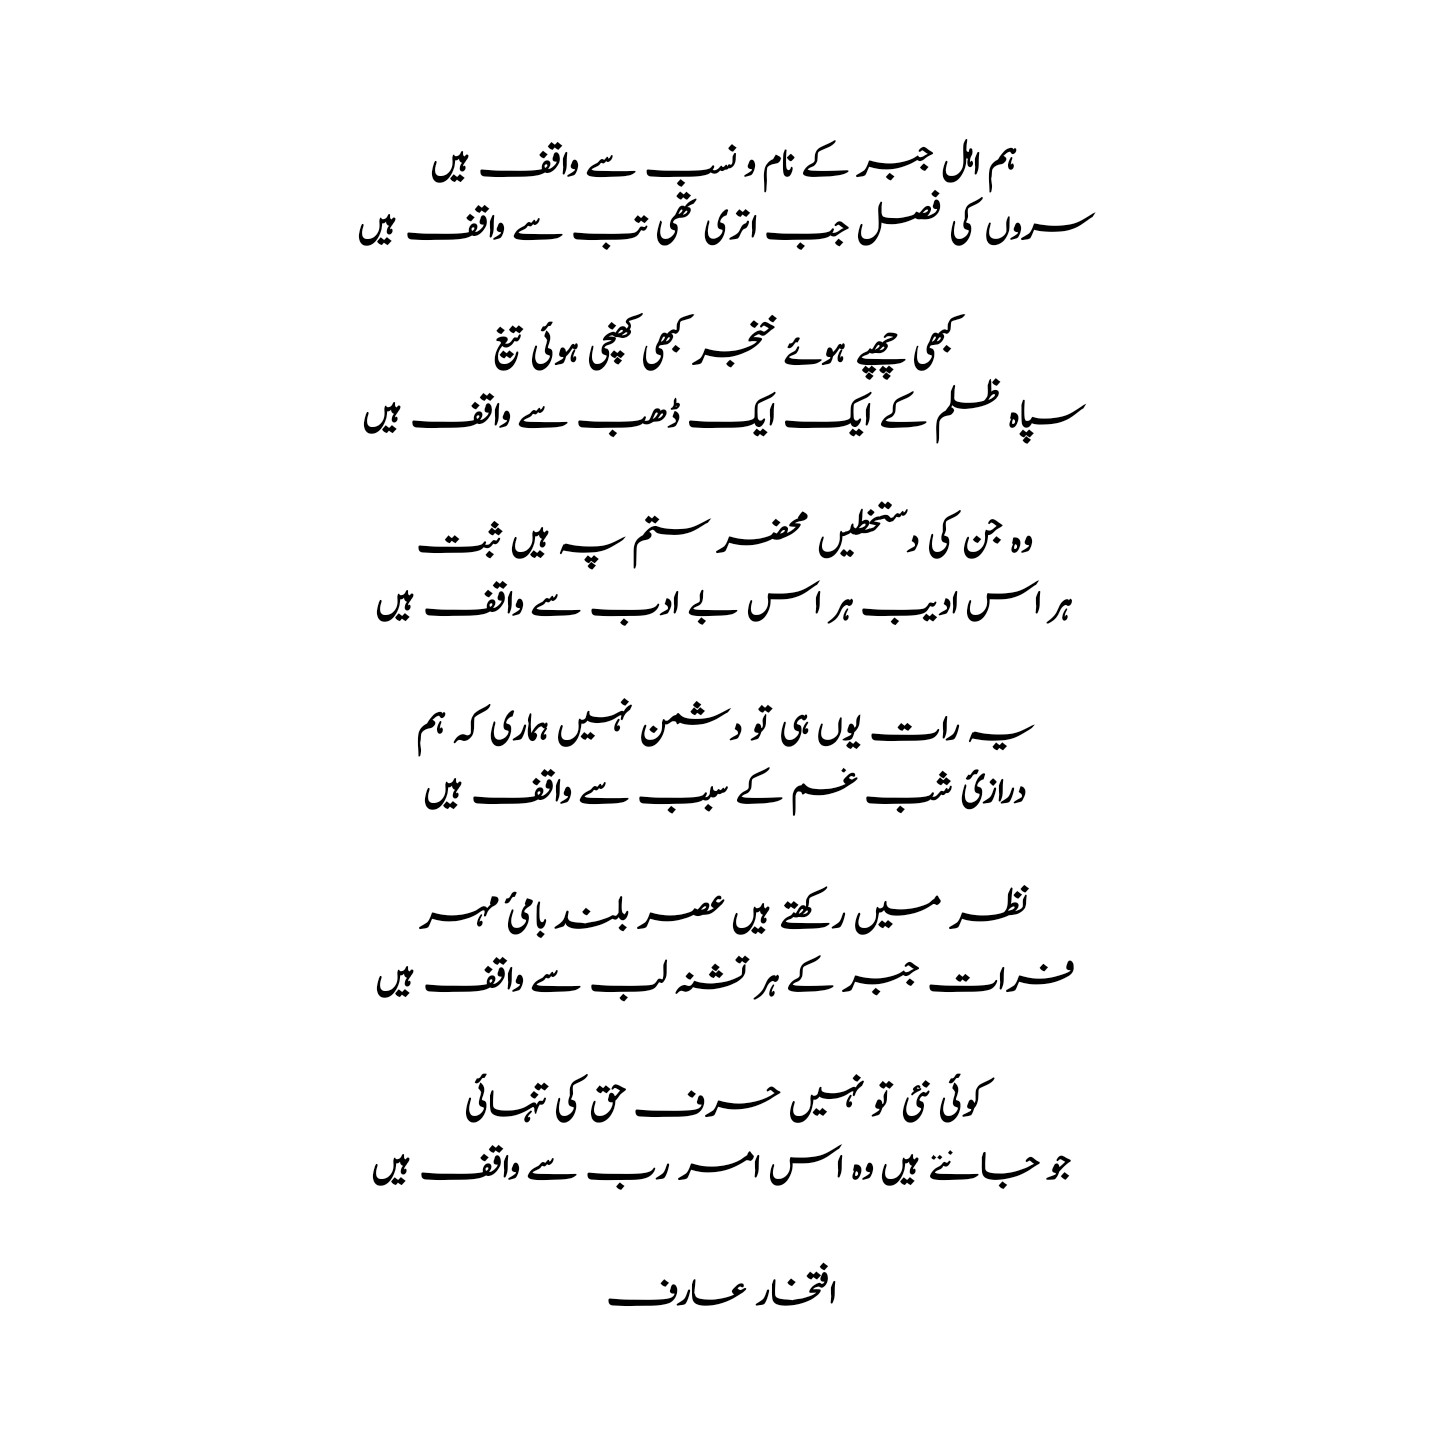 ہم اہل جبر کے نام و نسب سے واقف ہیں
سروں کی فصل جب اتری تھی تب سے واقف ہیں
کبھی چھپے ہوئے خنجر کبھی کھنچی ہوئی تیغ
سپاہ ظلم کے ایک ایک ڈھب سے واقف ہیں
وہ جن کی دستخطیں محضر ستم پہ ہیں ثبت
ہر اس ادیب ہر اس بے ادب سے واقف ہیں
یہ رات یوں ہی تو دشمن نہیں ہماری کہ ہم
درازیٔ شب غم کے سبب سے واقف ہیں
نظر میں رکھتے ہیں عصر بلند بامیٔ مہر
فرات جبر کے ہر تشنہ لب سے واقف ہیں
کوئی نئی تو نہیں حرف حق کی تنہائی
جو جانتے ہیں وہ اس امر رب سے واقف ہیں
افتخار عارف